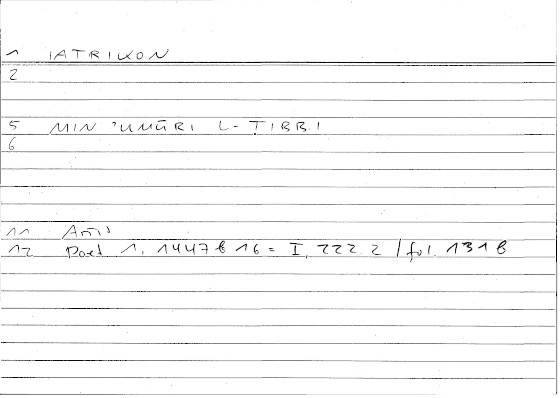 1 IATRIKON
2
5 MIN 'UMŪRI L-ṬIBBI
6
11 Arist
12 Poet 1, 1447 b 16 = I, 222 2 / fol. 131 b